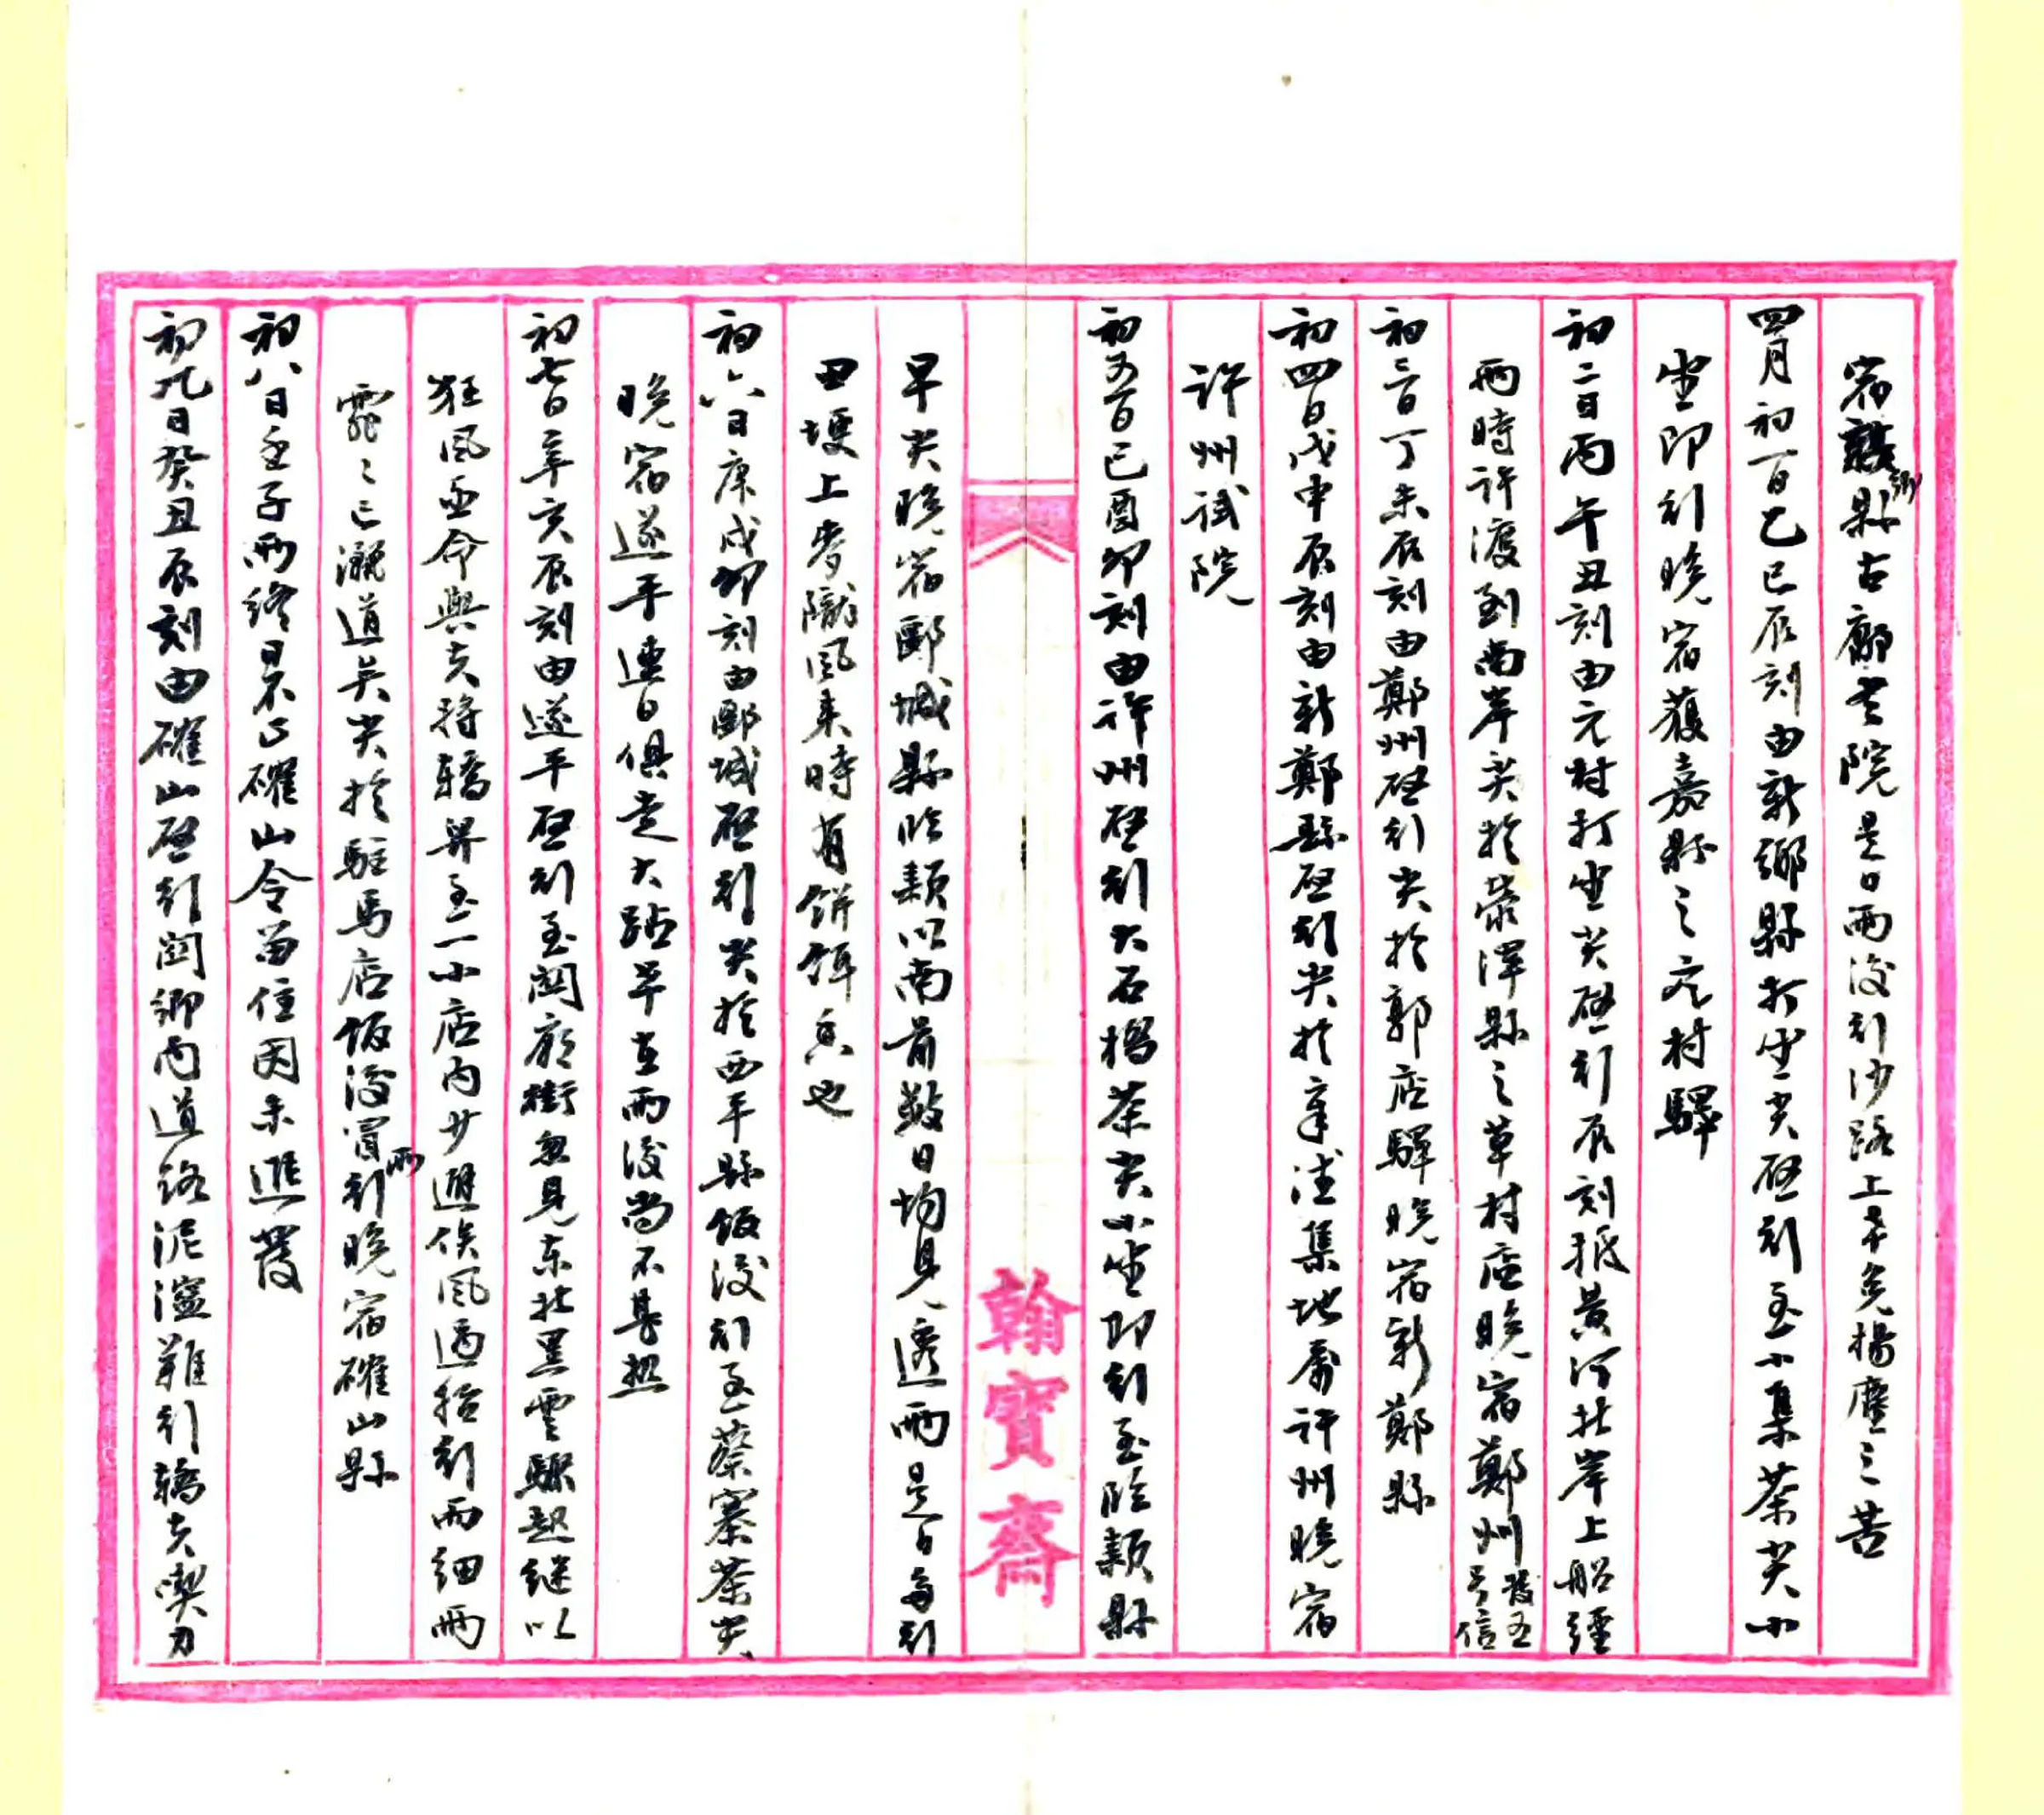 宿新鄉縣古鄘書院是日雨後行沙路上幸免揚塵之苦
四月初一日乙巳辰刻由新鄉縣打坐尖啟行至小集茶尖小
坐即行晚宿獲嘉縣之亢村驛
初二日丙午丑刻由亢村打坐尖啟行辰刻抵黃河北岸上船經
兩時許渡到南岸尖於滎澤縣之草村店晚宿鄭州發五号信
初三日丁未辰刻由鄭州啟行尖於郭店驛晚宿新鄭縣
初四日戊申辰刻由新鄭縣啟行尖於集地屬許州晚宿
許州試院
初五日己酉卯刻由許州啟行大石橋茶尖小坐即行至臨潁縣
翰寶齋
早尖晚宿郾城縣臨潁以南前數日均見透雨是日每行
田埂上麥隴風來時有餅餌香也
初六日庚戌卯刻由郾城啟行尖於西平縣飯後行至蔡寨茶尖
晚宿遂平連日俱走大站幸在雨後尚不甚熱
初七日辛亥辰刻由遂平啟行至關廂街忽見東北黑雲驟起繼以
狂風亟命輿夫將轎舁至一小店內少避俟風過始行而細雨
霏〻已濺道矣尖於駐馬店飯後冒雨行晚宿確山縣
初八日壬子雨終日不止確山令留住因未進發
初九日癸丑辰刻由確山啟行闗鄉內道路泥濘難行轎夫喫力